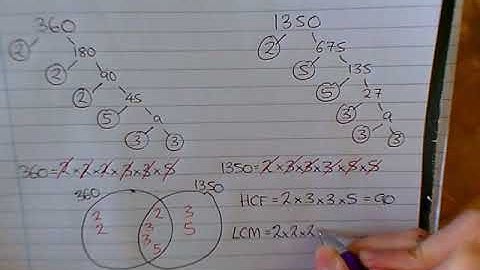 360
2 180
2 90
2 45
5 9
3 3
1350
2 675
5 135
5 27
3 9
3 3
360=2×2×2×3×3×5
1350=2×3×3×3×5×5
360 1350
2 2 3
2 3 5
3
5
HCF = 2×3×3×5 = 90
LCM = 2×2×2×